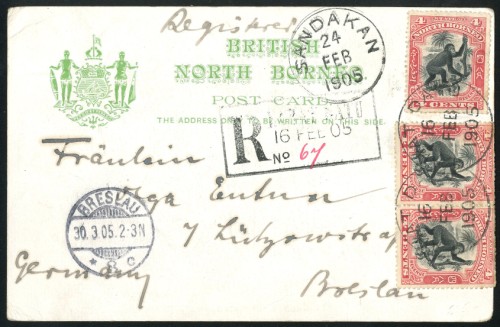 Registered
BRITISH
NORTH BORNEO
POST CARD
THE ADDRESS ONLY TO BE WRITTEN ON THIS SIDE.
SANDAKAN
24
FEB
1905
R
16 FEB 05
No 67
4
NORTH BORNEO
CENTS
16
FEB
1905
16
FEB
1905
Fräulein
Olga
BRESLAU
30.3.05.2-3N
* 8 c
7 Lützowstr
Germany
Breslau